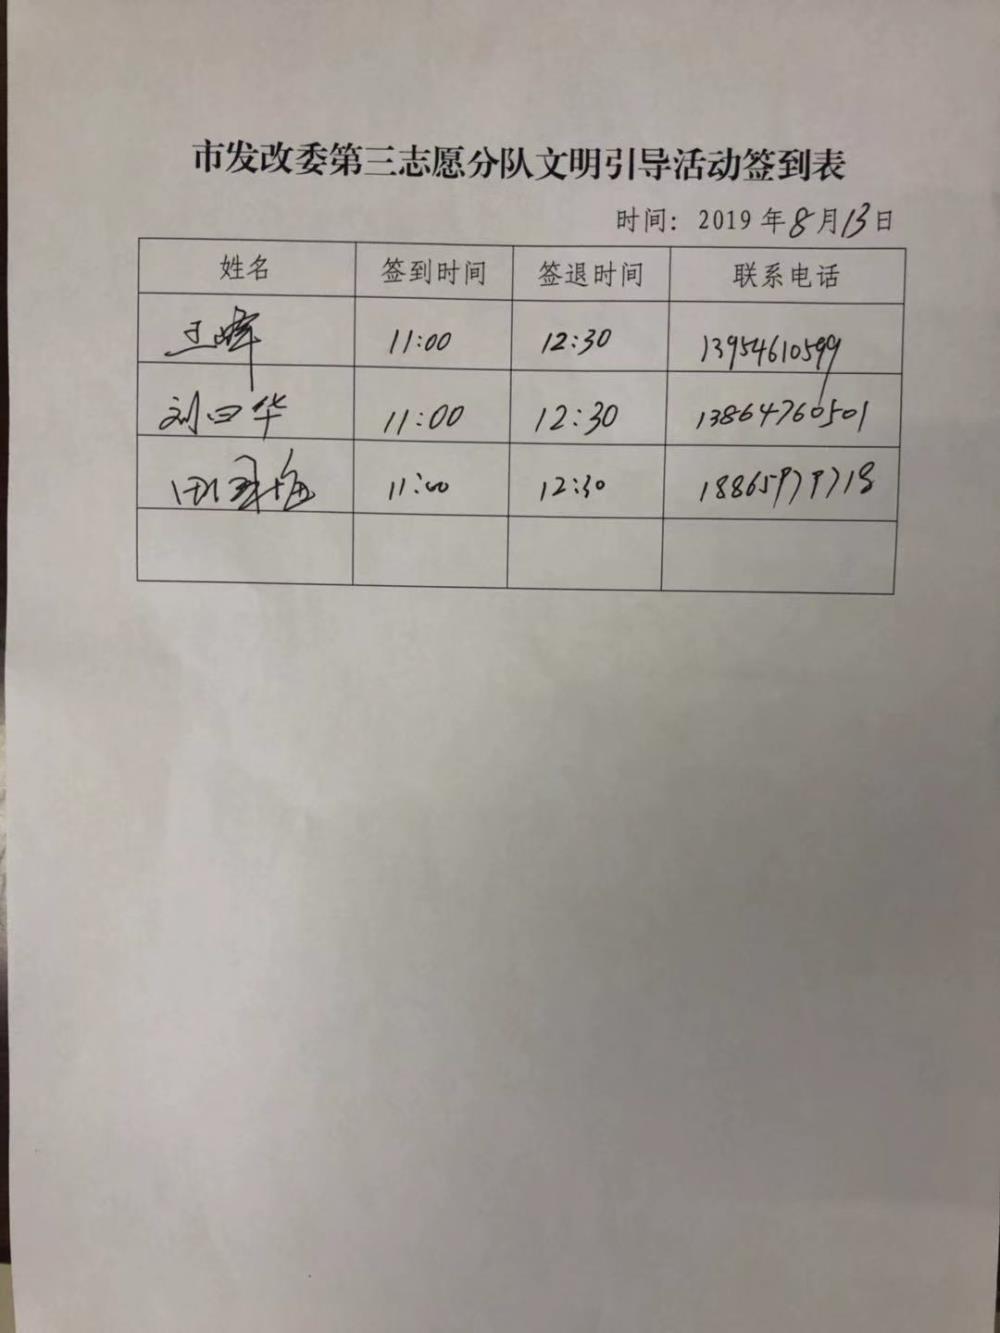 市发改委第三志愿分队文明引导活动签到表
时间: 2019年8月13日
姓名 签到时间 签退时间 联系电话
王峰 11:00 12:30 13954610599
刘日华 11:00 12:30 13864760501
11:00 12:30 18865979718